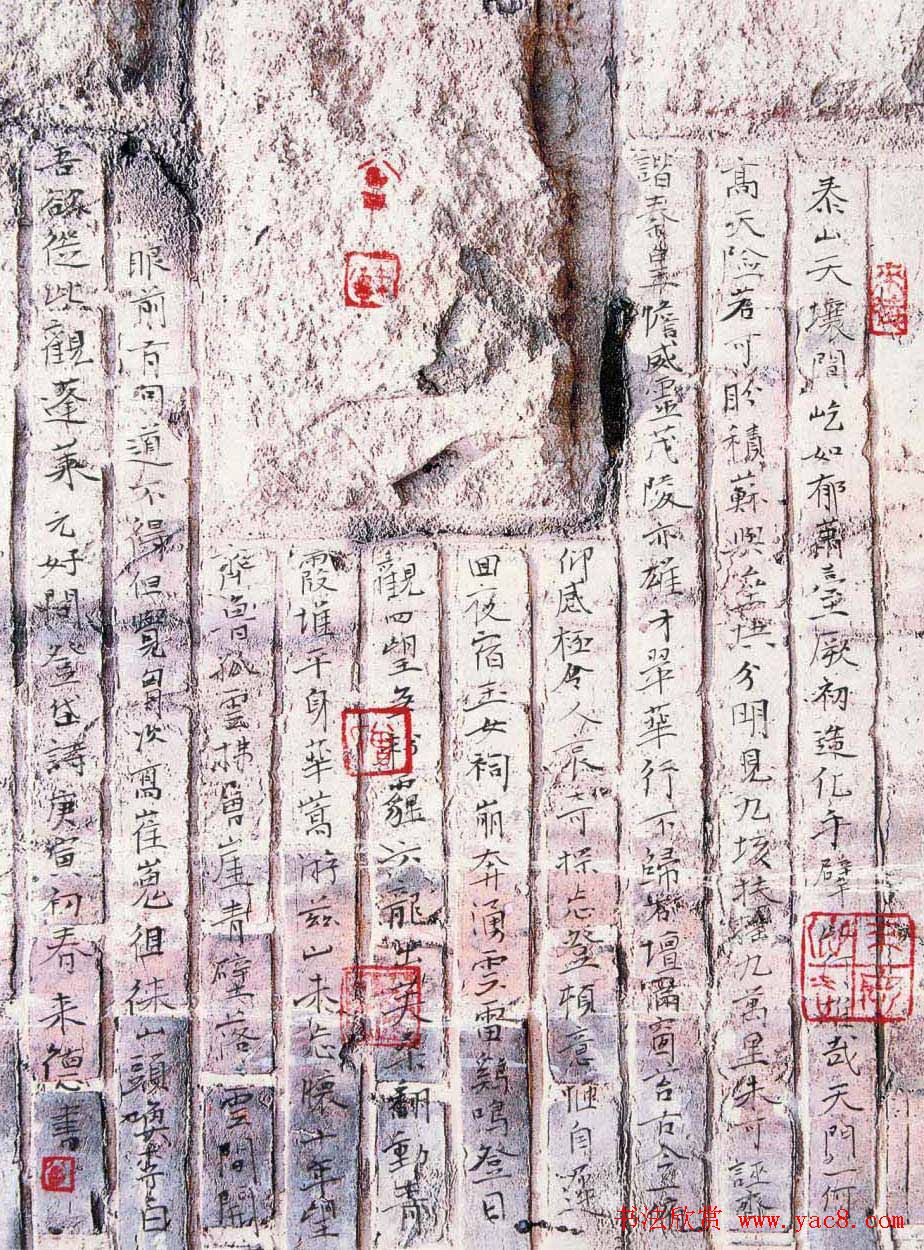 泰山天壤間屹如郁蕭臺厥初造化手擘哉天門一何
高天險若可積蘇與壘塊分明見九垓扶搖九萬里未可誣齊
諧秦皇憺威靈茂陵亦雄才翠華行不歸石壇滿窗苔古今一俯
仰感極令人哀奇探忘登頓意愜自遲
回夜宿玉女祠崩奔湧雲雷鷄鳴登日
觀四望無霾六龍出扶桑翻動青
霞堆平身華嵩游茲山未忘懷十年望
齊魯孤雲拂層崖青壁落落雲間開
眼前有句道不得但覺胸次高崔嵬徂徠山頭喚李白
吾欲從此觀蓬萊元好問登岱詩庚寅初春未德書
书法欣赏 www.yac8.com